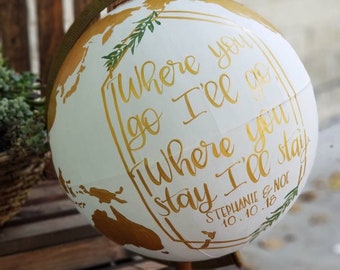 Where you
go I'll go
Where you
stay I'll stay
STEPHANIE & NOE
10.10.18